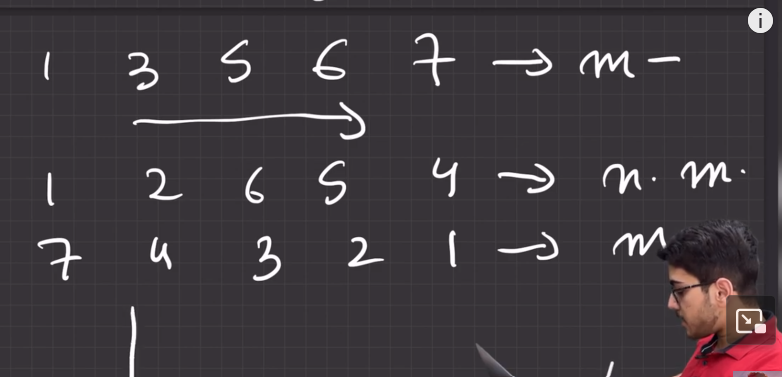 1 3 5 6 7 → m -
1 2 6 5 4 → n. m.
7 4 3 2 1 → m